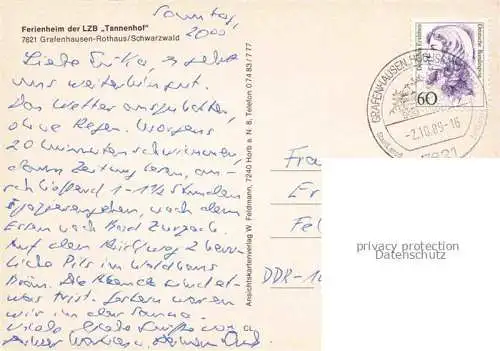 Ferienheim der LZB „Tannenhof"
7821 Grafenhausen-Rothaus/Schwarzwald
Sonntag,
20⁰⁰
Liebe Erika, es geht
uns weiterhin gut.
Das Wetter ausgeglichen,
ohne Regen. Morgens
20 minuten schwimmen,
dann Zeitung lesen, an-
schließend 1-1½ Stunden
Spazierengehen, nach dem
Essen nach Bad Zurzach.
Auf dem Rückweg 2 herr-
liche Pils im Waldhaus
Bräu. Die Abende sind et-
was trist. Gestern waren
wir in der Sauna.
viele Grüße
Ansichtskartenverlag W. Feldmann, 7240 Horb a. N. 8, Telefon 0 74 83 / 7 77
Deutsche Bundespost
60
GRAFENHAUSEN
-2.10.89-16
7821
Fra
Er
Fel
DDR-1
privacy protection
Datenschutz